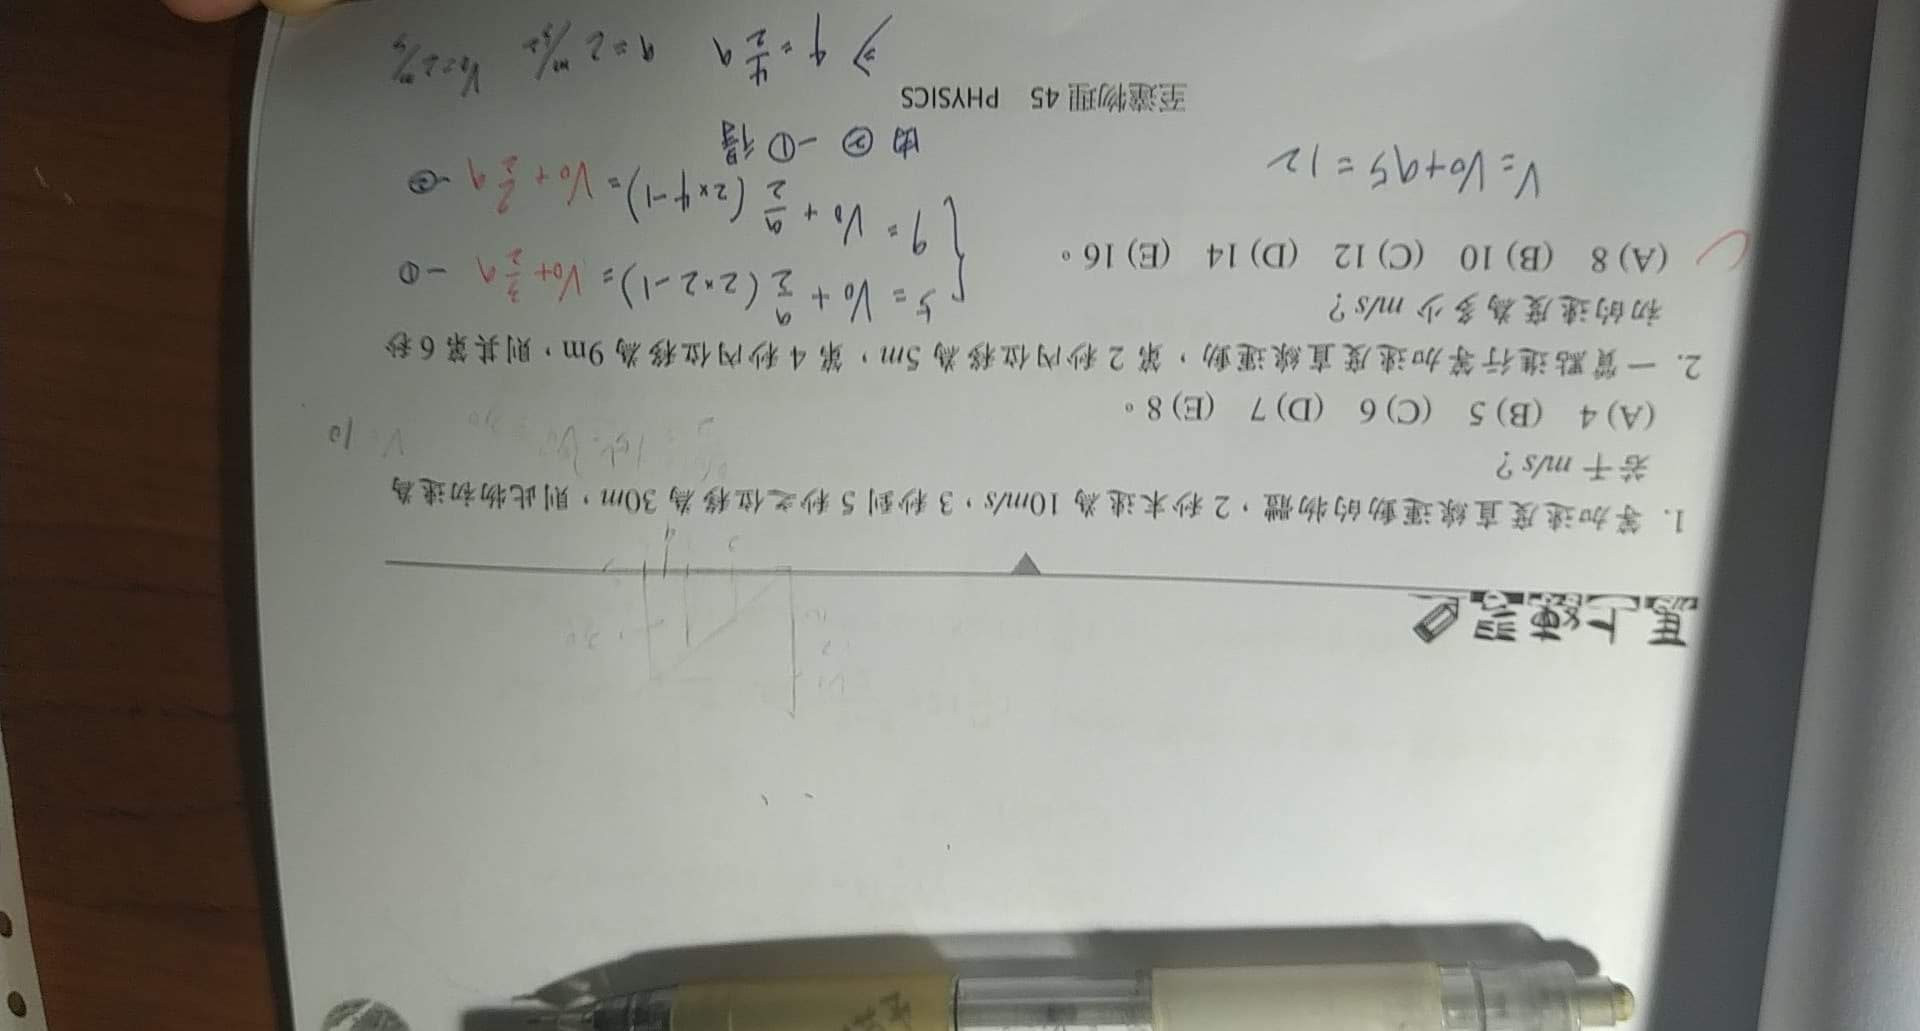 馬上練習
1. 等加速度直線運動的物體，2秒末速為 10m/s，3秒到5秒之位移為 30m，則此物初速為
若干 m/s？
(A) 4 (B) 5 (C) 6 (D) 7 (E) 8。
2. 一質點進行等加速度直線運動，第2秒內位移為 5m，第4秒內位移為 9m，則其第6秒
初的速度為多少 m/s？
(A) 8 (B) 10 (C) 12 (D) 14 (E) 16。
5 = V₀ + a/2 (2×2-1) = V₀ + 3/2 a -①
9 = V₀ + a/2 (2×4-1) = V₀ + 7/2 a -②
V = V₀ + a5 = 12
由 ② - ① 得
至達物理 45 PHYSICS
⇒ 4 = 4/2 a a = 2 m/s² V₀ = 2 m/s